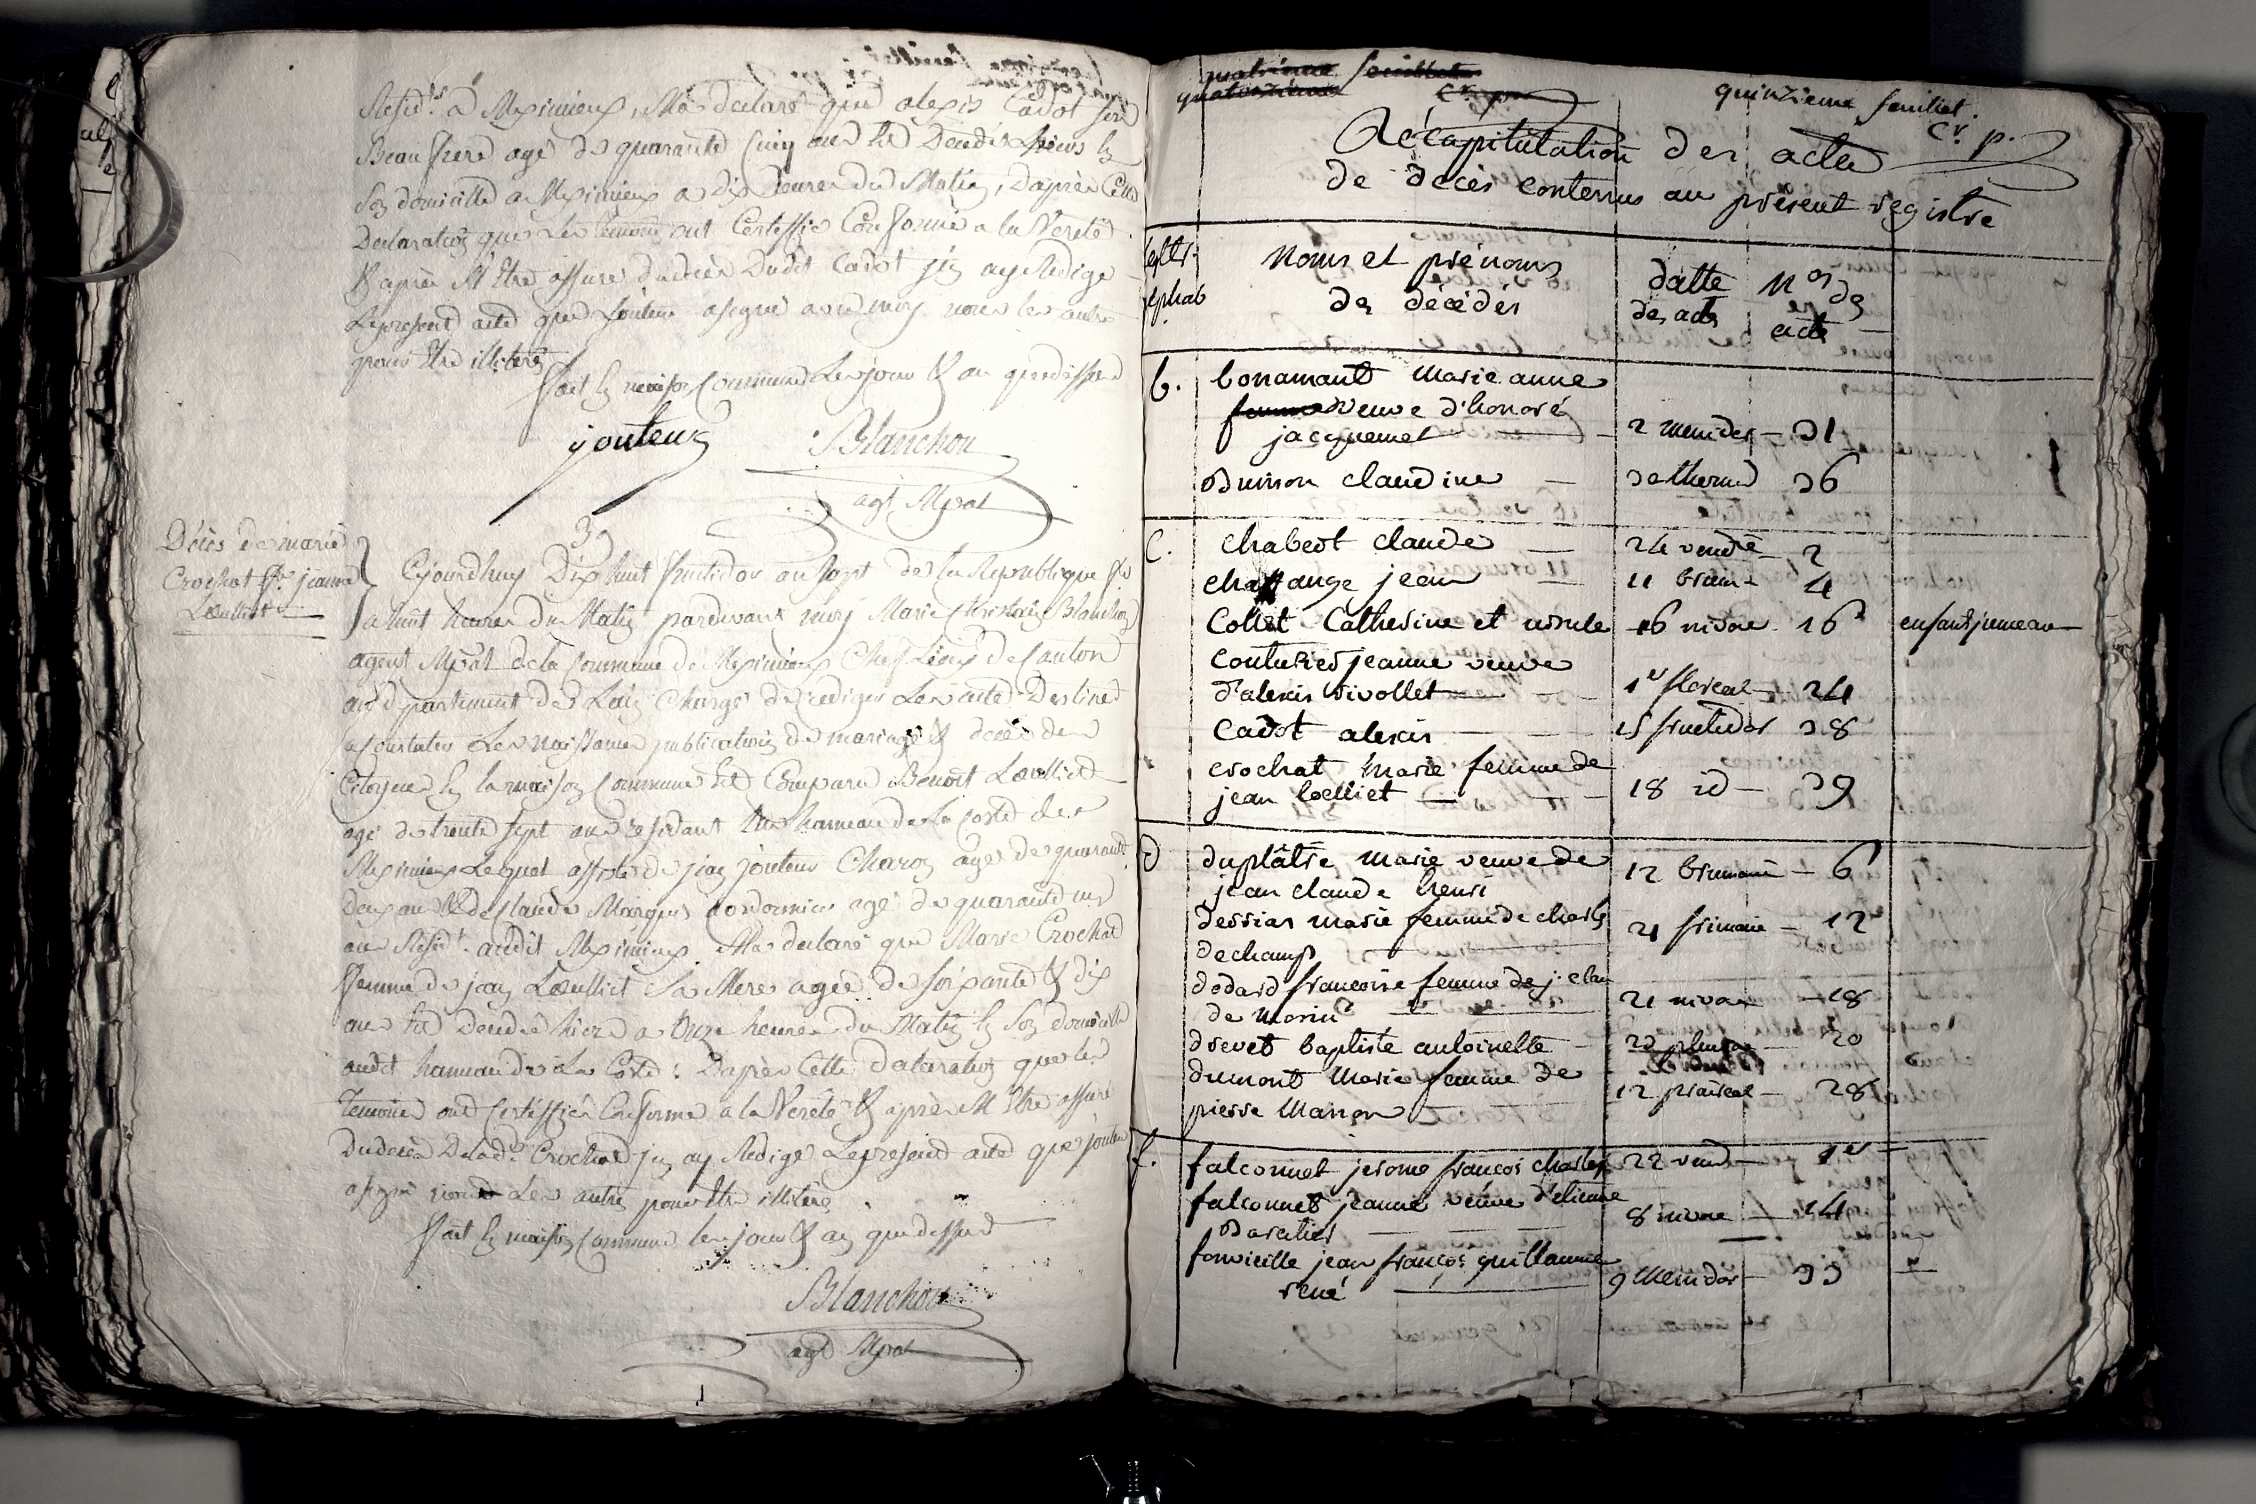 Resid.ts à Meximieux, M'a declaré que alexis Cadot son
Beau frere agé de quarante Cinq ans Est Decedé hier En
Son domicille a Meximieux a dix heures du Matin, D'après Cette
Declaration que Les témoins ont Certiffié Conforme a la Verité
Et après M'Etre assuré du décès Dudit Cadot j'en ay Redigé
Le present acte que jouteur a signé avec moy non les autres
pour Etre illiteré
Fait En maison Commune Les jour Et an que dessus
jouteur Blanchon
agt Mpal
39
Décès de marie
Crochat fe. jean
Loëlliet
Cejourd'huy Dix huit fructidor an Sept de la Republique
a huit heures du Matin pardevant moy Marie Blanchon
agent Mpal de la Commune de Meximieux Chef Lieu de Canton
au departement de L'ain Chargé de rediger Les actes Destinés
a Constater Les Naissances publications de mariages Et décès des
Citoyens En la maison Commune Est Comparu Benoit Loëlliet
agé de trente sept ans residant au hameau de la Coste de
Meximieux Lequel assisté de jean jouteur Charon agé de quarante
Deux ans Et de Claude Marquis Cordonnier agé de quarante
ans Resid.t audit Meximieux, M'a declaré que Marie Crochat
Femme de jean Loëlliet Sa Mere agée de soixante Et dix
ans Est Decedée hier a Onze heures du Matin En Son domicille
audit hameau de La Coste : D'après Cette declaration que les
Temoins ont Certiffié Conforme a la Verité Et après M'Etre assuré
Du décès De lad.e Crochat j'en ay Redigé Le present acte que jouteur
a signé non Les autres pour Etre illiteré
Fait En maison Commune les jour Et an que dessus
Blanchon
agt Mpal
quatrieme feuillet
quatorzieme
quinzieme feuillet.
Cr. p.
Récapitulation des actes
de décès contenus au présent registre
lettr. alphab
Noms et prénoms des décédés
datte des acts
Nos des acts
b. bonamant Marie anne
femme veuve d'honoré
jacquemet — 2 messidor — 31
Buisson claudine — 3e thermid 36
C. chabert claude — 24 vendre — 2
chaffange jean — 11 brum — 4
Collet Catherine et ursule 16 nivose 16 enfants jumeaux
Couturier jeanne veuve
d'alexis rivollet — 1er floreal — 24
Cadot alexis — 15 fructidor 38
crochat Marie femme de
jean loelliet — 18 id — 39
D duplâtre Marie veuve de
jean claude henri 12 brumaire — 6
dessias marie femme de charles
dechamp 21 frimaire — 12
dodard francoise femme de j. clau
de morin — 21 nivose — 18
drevet baptiste antoinette — 23 pluviose — 20
dumont Marie femme de
pierre Manon — 12 prairial — 28
f. falconnet jerome francois charles 22 vend — 1er
falconnet jeanne veuve d'etienne
8 nivose — 14
fonvieille jean françois guillaume
rené — 9 Messidor — 33